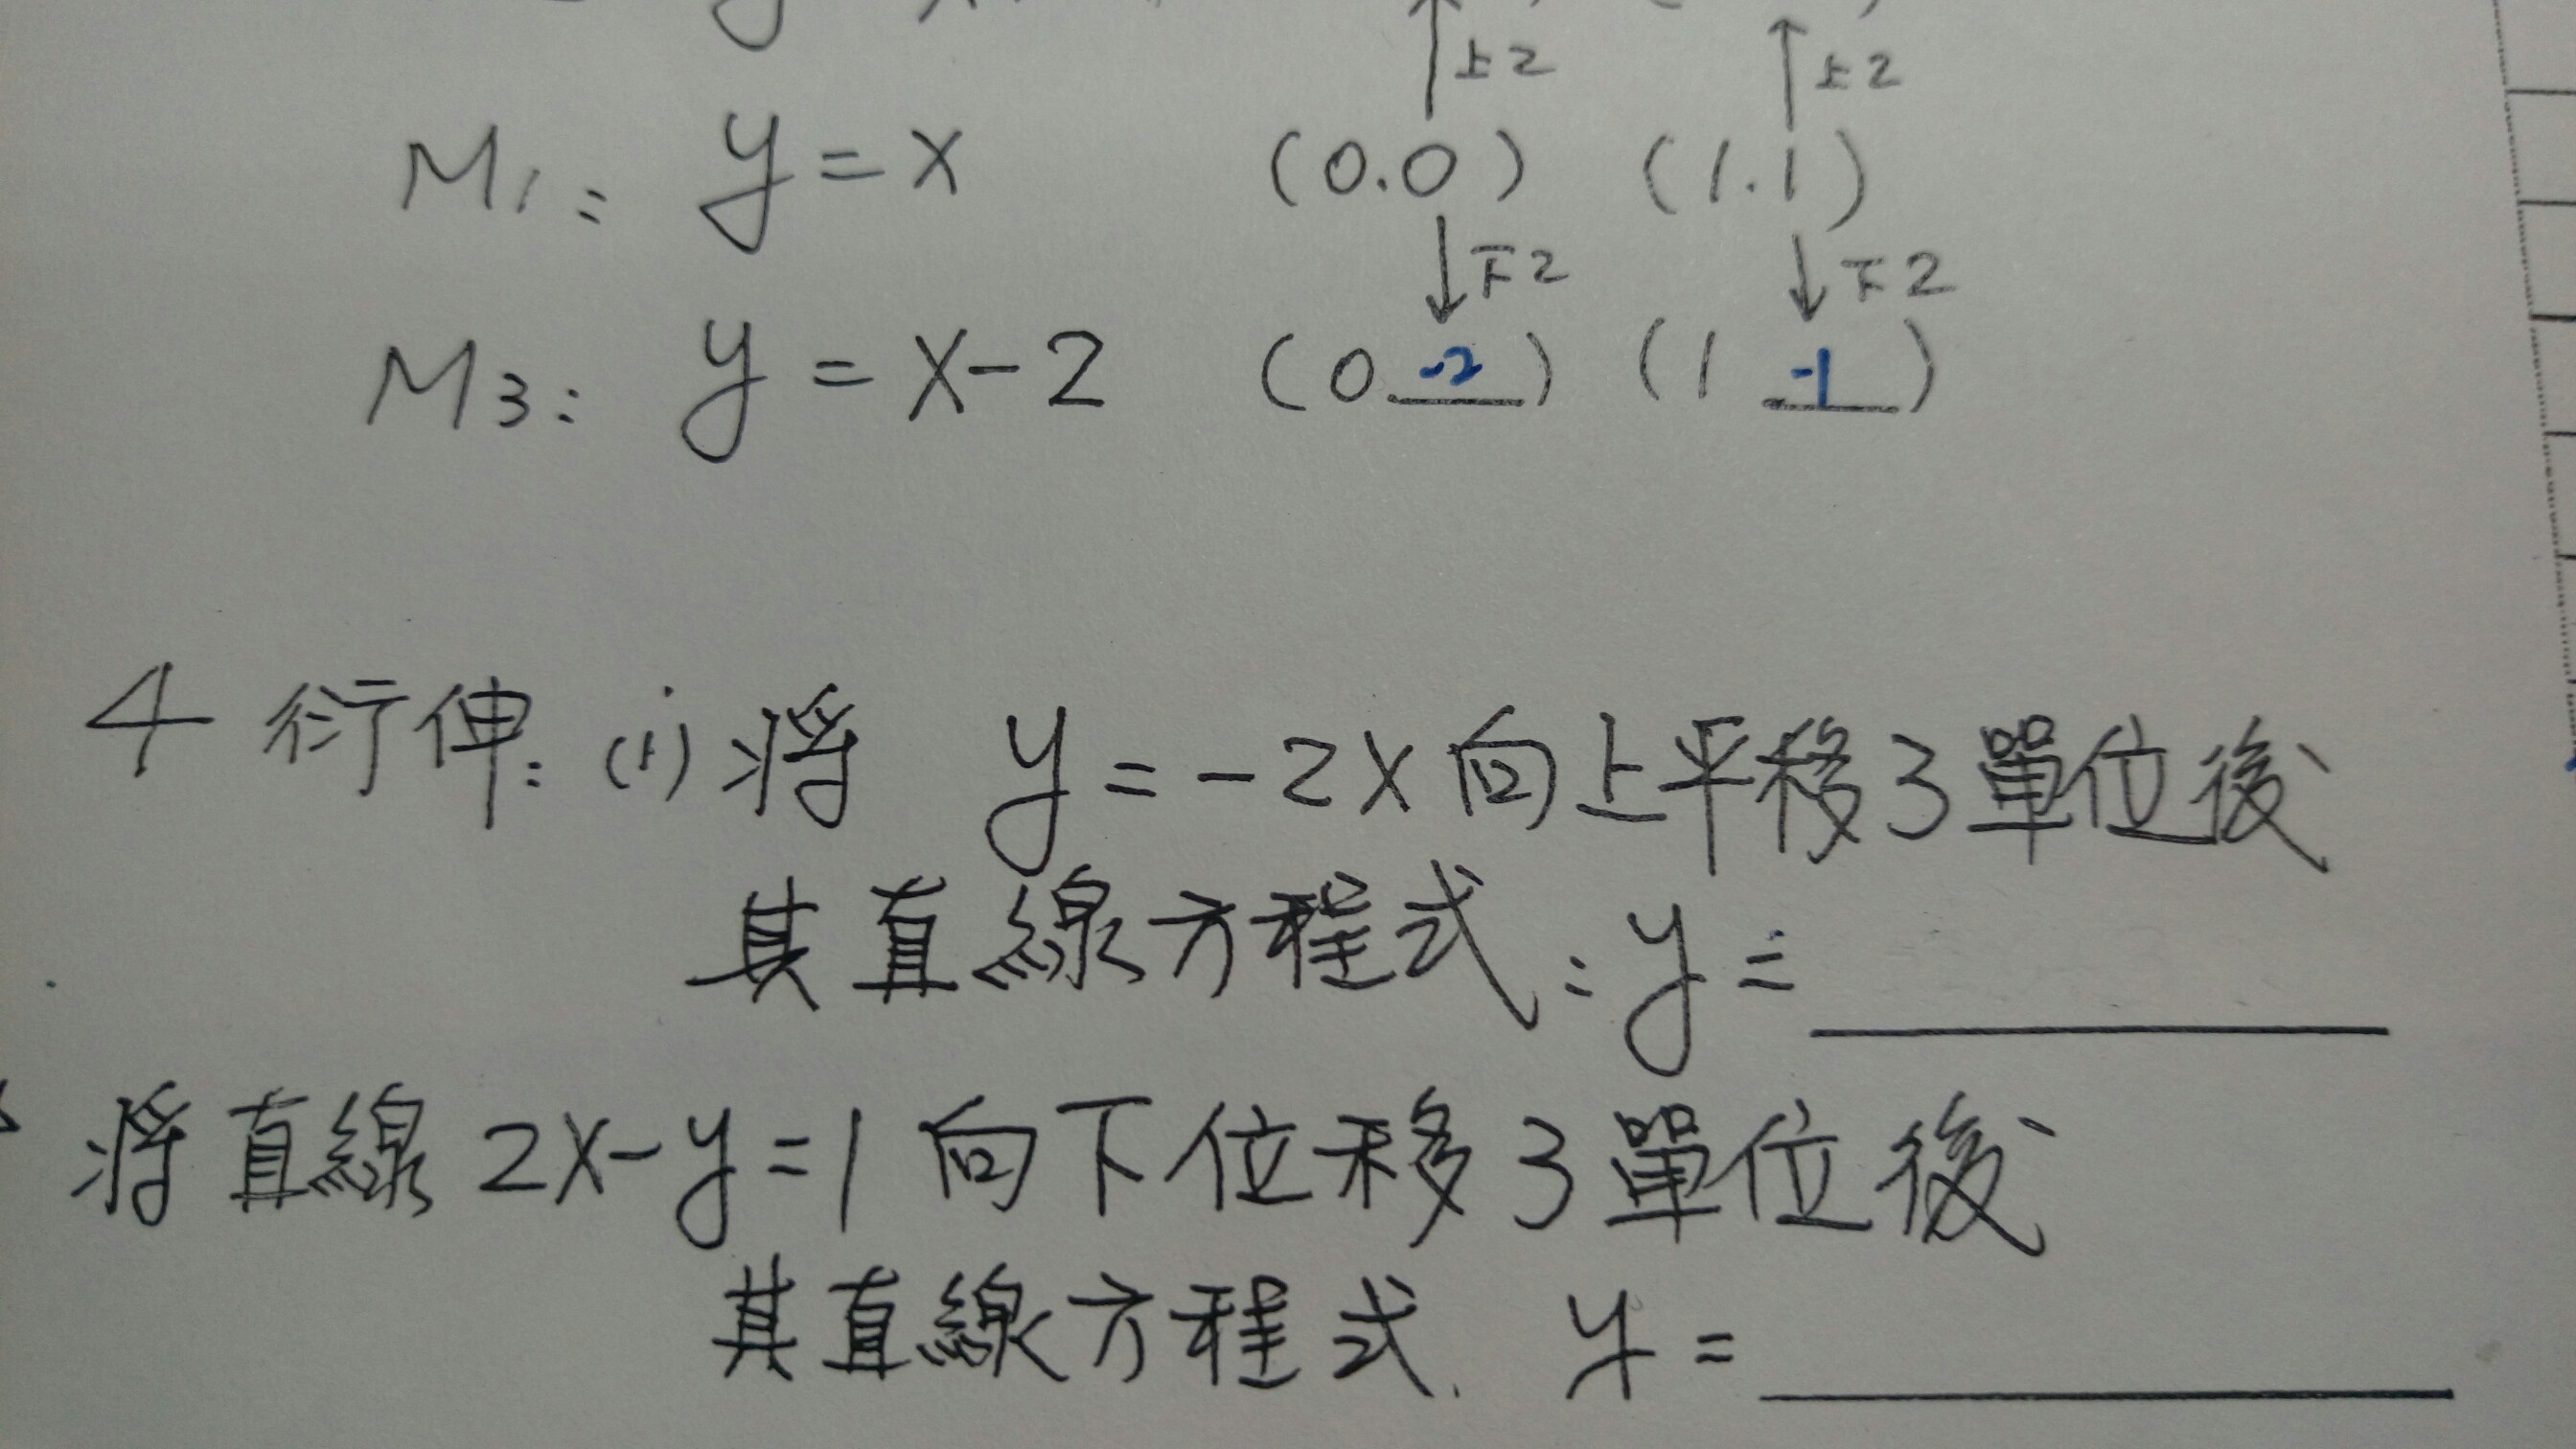 上2 上2
M1: y = x (0.0) (1.1)
下2 下2
M3: y = x-2 (0 -2) (1 -1)
4 衍伸: (1) 將 y = -2x 向上平移3單位後
其直線方程式: y =
將直線 2x-y=1 向下位移3單位後
其直線方程式. y =